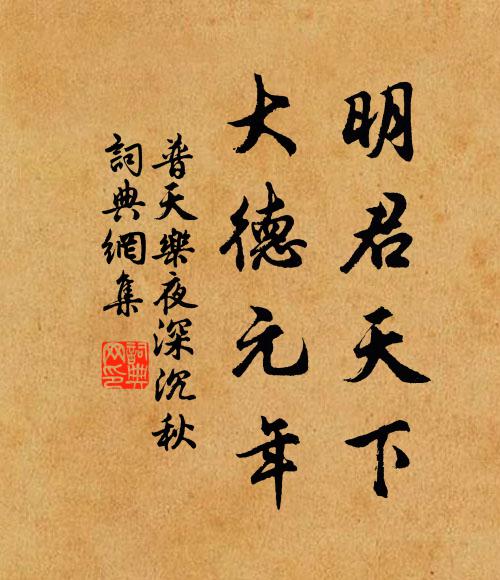 明君天下
大德元年
普天樂夜深沉秋
詞典網集
詞典網印